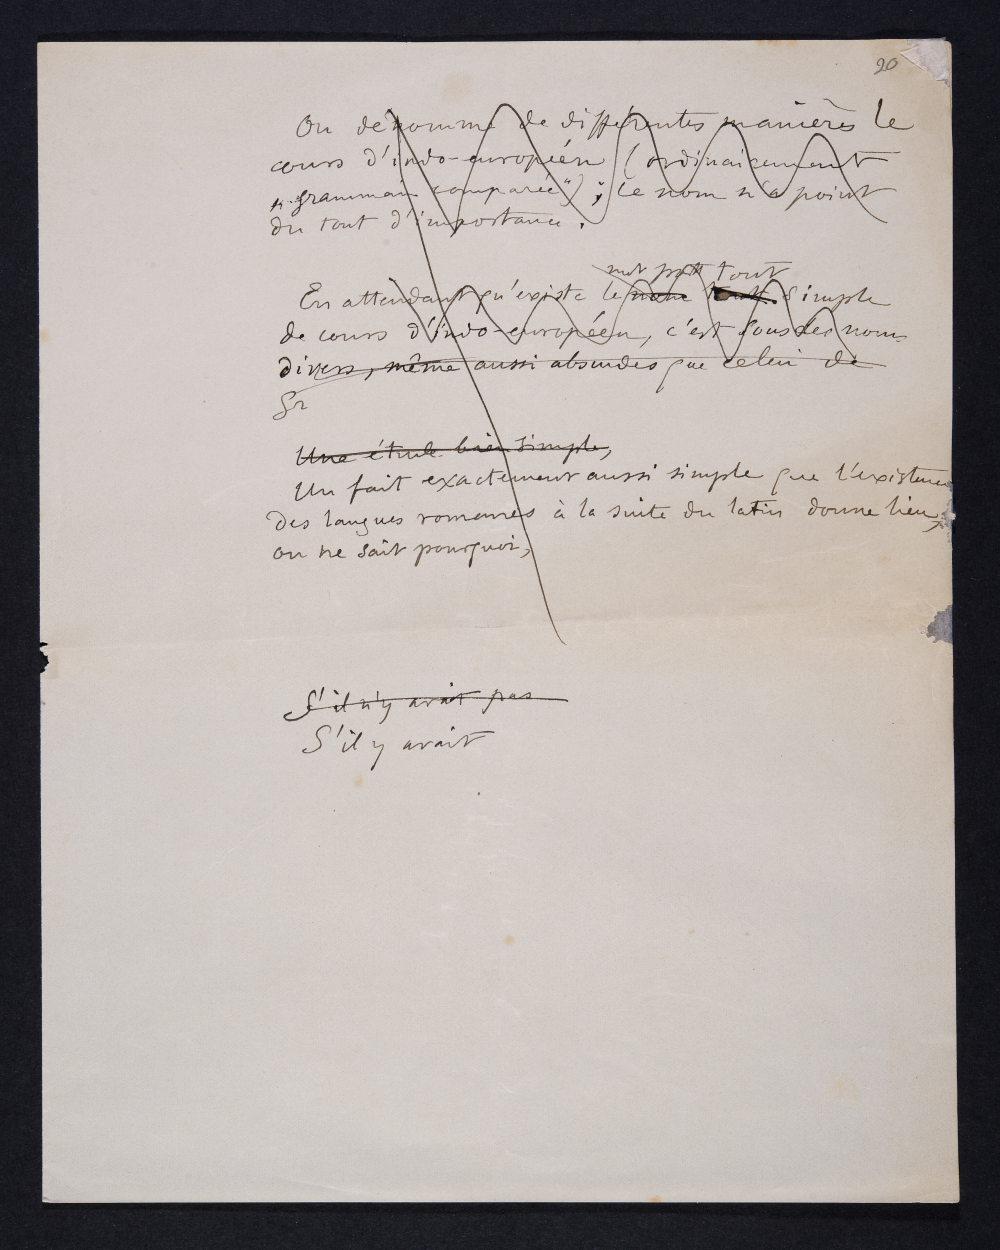 20
On dénomme de différentes manières le
cours d'indo-européen (ordinairement
"grammaire comparée") ; le nom n'a point
du tout d'importance.
mot tout
En attendant qu'existe le nom simple
de cours d'indo-européen, c'est sous des noms
divers, même aussi absurdes que celui de
Gr
Une étude bien simple,
Un fait exactement aussi simple que l'existence
des langues romanes à la suite du latin donne lieu,
on ne sait pourquoi,
S'il n'y avait pas
S'il y avait